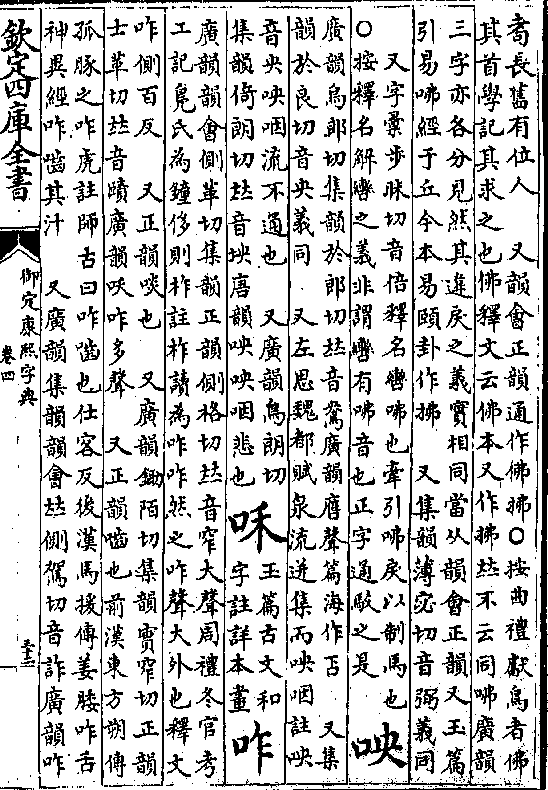 耉長舊有位人　又韻會正韻通作佛拂○按曲禮獻鳥者佛
其首學記其求之也佛釋文云佛本又作拂𠀤不云同咈廣韻
三字亦各分見然其違戾之義實相同當从韻會正韻又玉篇
引易咈經于丘今本易頤卦作拂　又集韻薄宓切音弼義同
又字彙步昧切音倍釋名轡咈也牽引咈戾以制馬也
○按釋名解轡之義非謂轡有咈音也正字通駮之是
咉
廣韻烏郎切集韻於郎切𠀤音鴦廣韻膺聲篇海作㕴　又集
韻於良切音央義同　又左思魏都賦泉流迸集而咉咽註咉
音央咉咽流不通也　又廣韻烏朗切
集韻倚朗切𠀤音坱唐韻咉咉咽悲也
咊
玉篇古文和
字註詳本畫
咋
廣韻韻會側革切集韻正韻側格切𠀤音窄大聲周禮冬官考
工記鳧氏為鐘侈則柞註柞讀為咋咋然之咋聲大外也釋文
咋側百反　又正韻啖也　又廣韻鋤陌切集韻實窄切正韻
士革切𠀤音賾廣韻咲咋多聲　又正韻嚙也前漢東方朔傳
孤豚之咋虎註師古曰咋嚙也仕客反後漢馬援傳姜腠咋舌
神異經咋嚙其汁　又廣韻集韻韻會𠀤側駕切音詐廣韻咋
欽定四庫全書
御定康熙字典
卷四